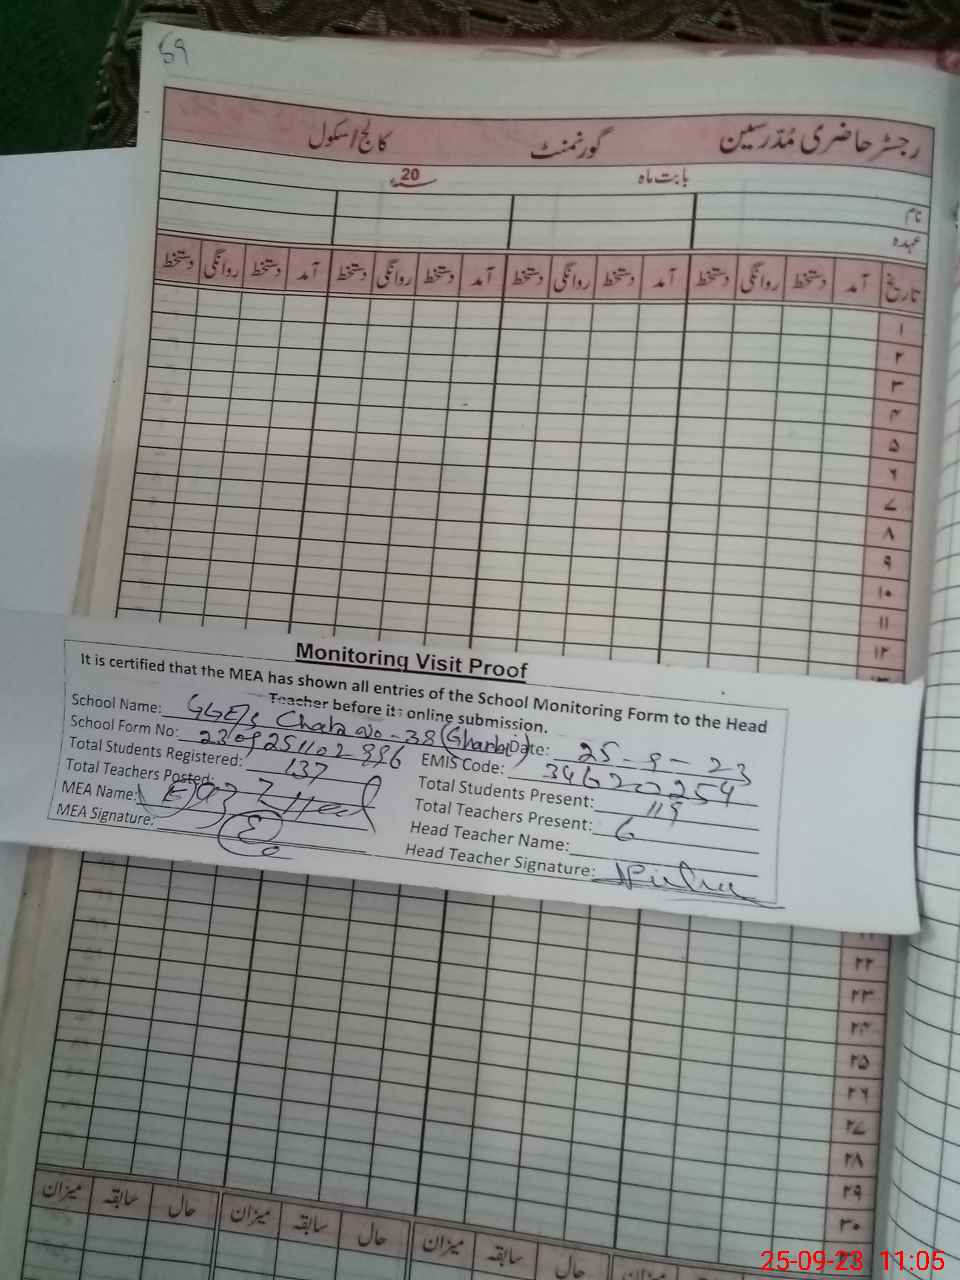 59
رجسٹر حاضری مُدرسین گورنمنٹ کالج/اسکول
بابت ماہ 20ء
نام
عہدہ
تاریخ آمد دستخط روانگی دستخط آمد دستخط روانگی دستخط آمد دستخط روانگی دستخط آمد دستخط روانگی دستخط
۱
۲
۳
۴
۵
۶
۷
۸
۹
۱۰
۱۱
۱۲
۱۳
Monitoring Visit Proof
It is certified that the MEA has shown all entries of the School Monitoring Form to the Head
Teacher before its online submission.
School Name: GGE/s Chak No-38 (Gharbi) Date: 25-9-23
School Form No: 2309251102996 EMIS Code: 34620254
Total Students Registered: 137 Total Students Present: 119
Total Teachers Posted: 7 Total Teachers Present: 6
MEA Name: Head Teacher Name:
MEA Signature: Head Teacher Signature:
۲۲
۲۳
۲۴
۲۵
۲۶
۲۷
۲۸
۲۹
۳۰
۳۱
حال سابقہ میزان حال سابقہ میزان حال سابقہ میزان
25-09-23 11:05